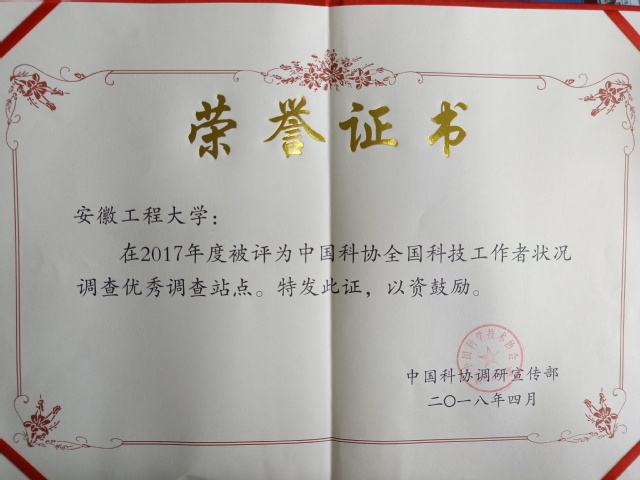 荣誉证书
安徽工程大学：
在2017年度被评为中国科协全国科技工作者状况
调查优秀调查站点。特发此证，以资鼓励。
中国科协调研宣传部
二〇一八年四月